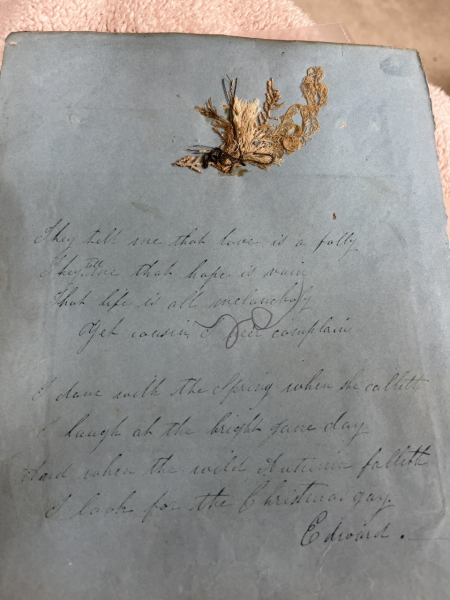 They tell me that love is a folly
They tell me that hope is vain
That life is all melancholy
Yet cousin I ne'er complain
I dance with the Spring when she calleth
I laugh at the bright June day
And when the wild Autumn falleth
I look for the Christmas gay.
Edward.